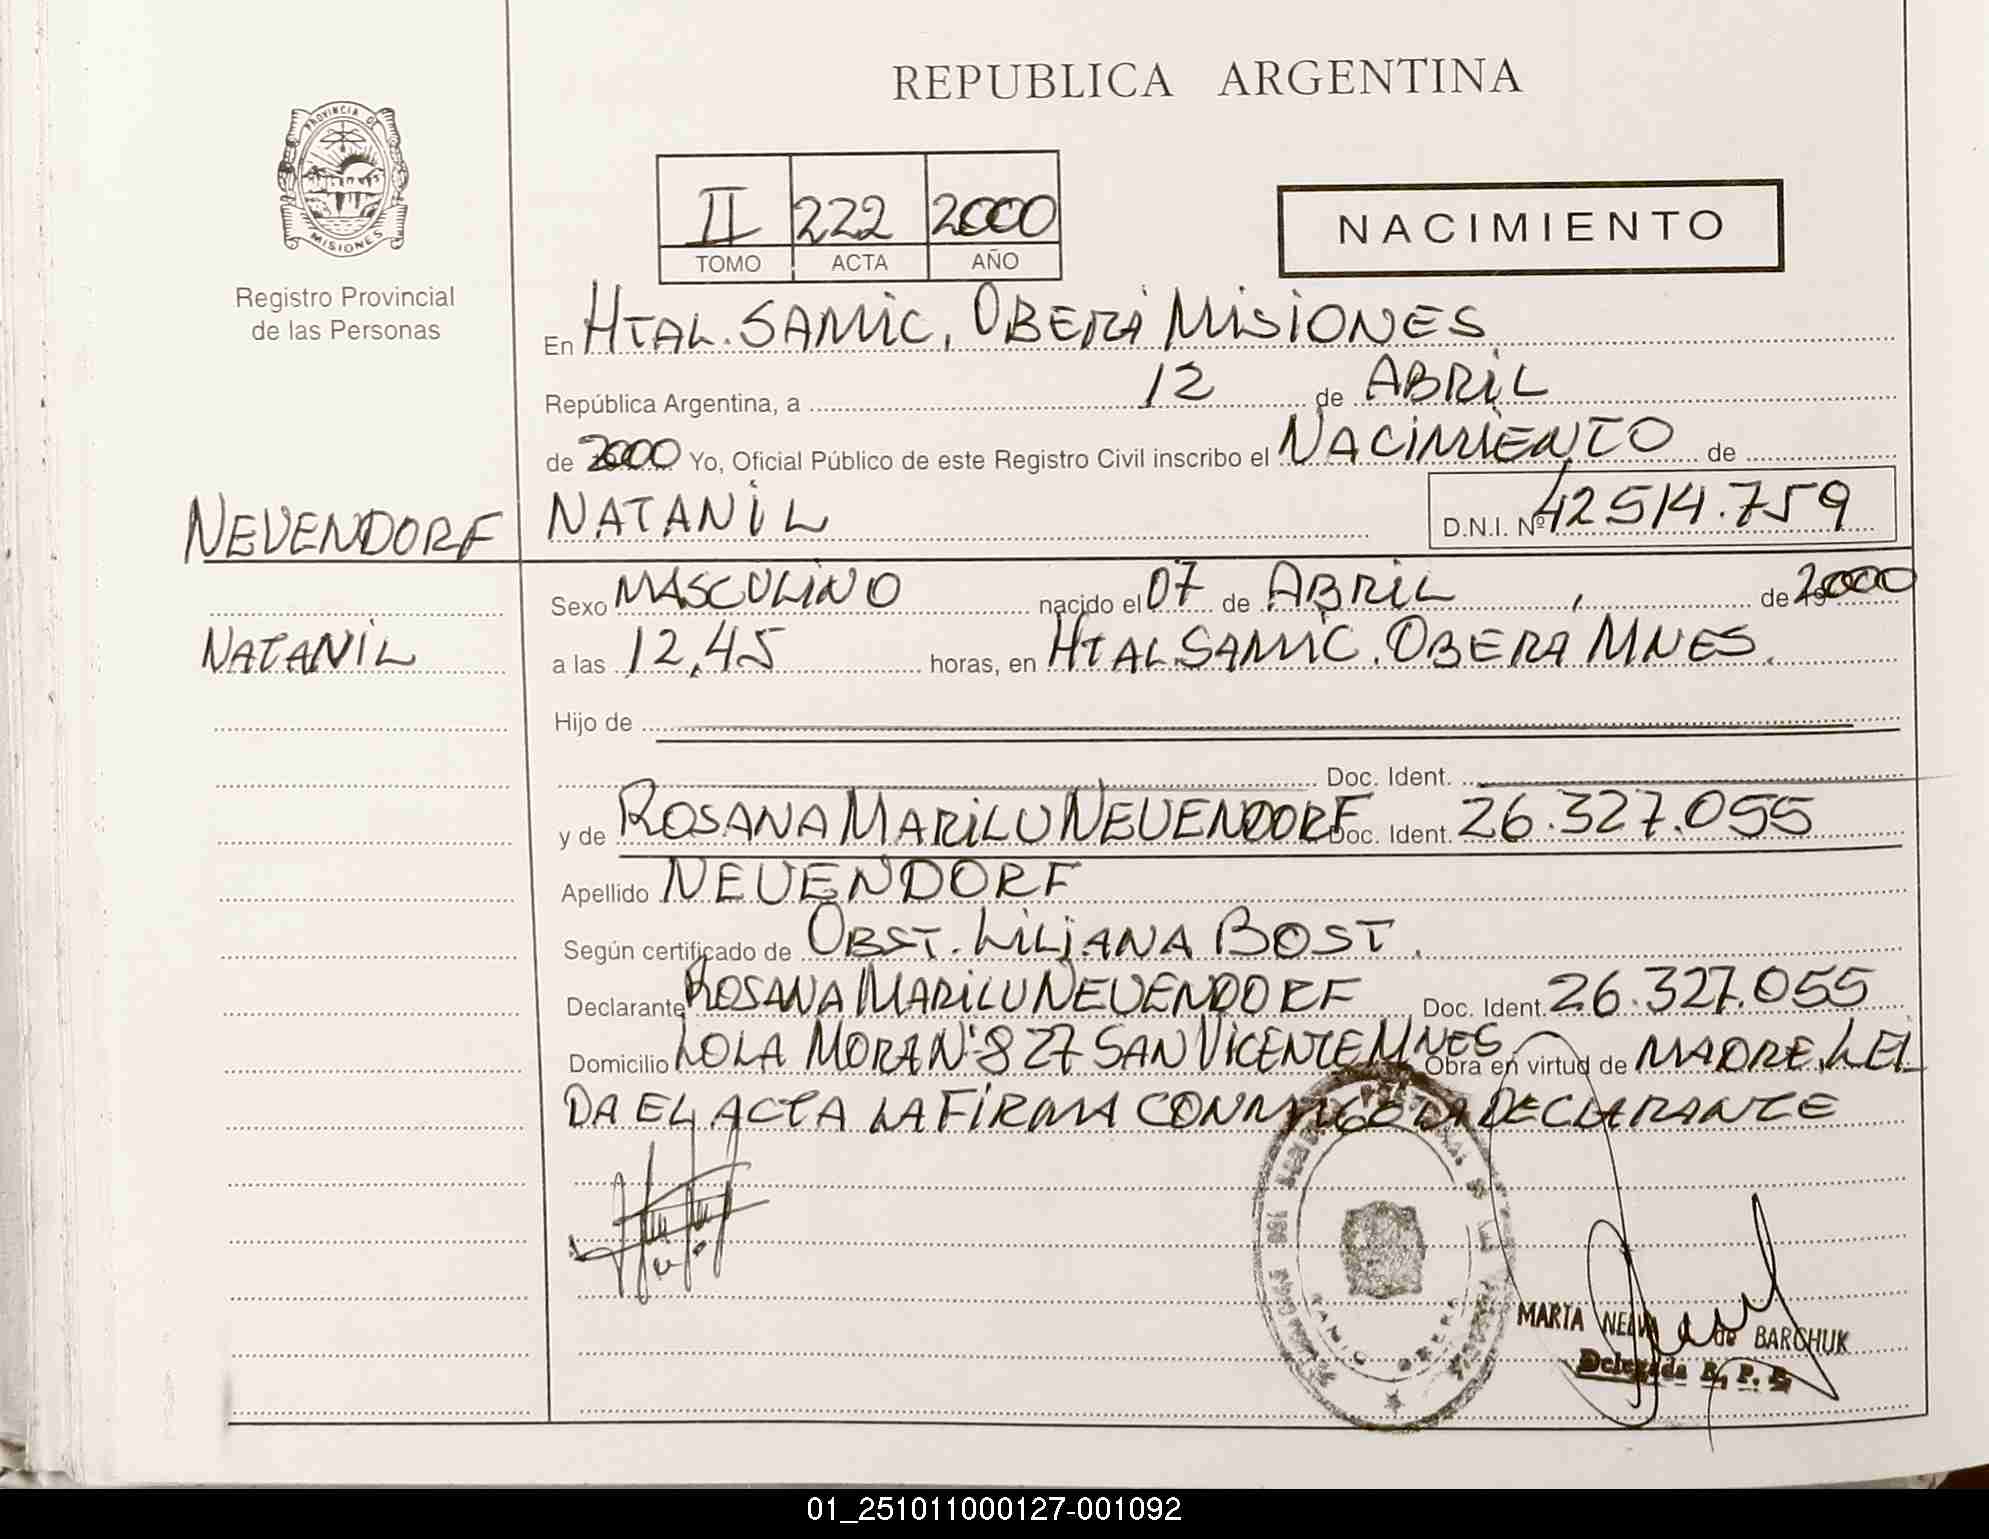 REPUBLICA ARGENTINA
PROVINCIA D
MISIONES
Registro Provincial
de las Personas
II 222 2000
TOMO ACTA AÑO
NACIMIENTO
En HTAL. SAMIC, OBERÁ MISIONES
República Argentina, a 12 de ABRIL
de 2000 Yo, Oficial Público de este Registro Civil inscribo el NACIMIENTO de
NEUENDORF NATANIL D.N.I. Nº 42514.759
Sexo MASCULINO nacido el 07 de ABRIL, de 2000
NATANIL a las 12,45 horas, en HTAL. SAMIC. OBERA MNES.
Hijo de
Doc. Ident.
y de ROSANA MARILU NEUENDORF Doc. Ident. 26.327.055
Apellido NEUENDORF
Según certificado de OBST. LILIANA BOST.
Declarante ROSANA MARILU NEUENDORF Doc. Ident. 26.327.055
Domicilio LOLA MORA Nº 827 SAN VICENTE MNES Obra en virtud de MADRE, LEI
DA EL ACTA LA FIRMA CONMIGO LA DECLARANTE
MARIA de BARCHUK
Delegada R. P. P.
01_251011000127-001092